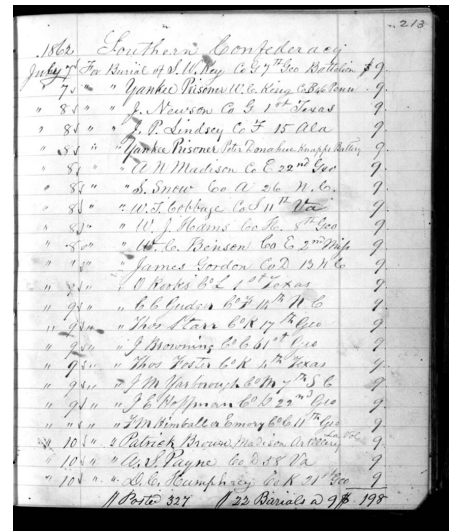 213
1862 Southern Confederacy
July 7 For Burial of S. W. Key Co G 7th Geo Battalion $ 9.
" 7 " " Yankee Prisoner W. C. King Co B Penn 9.
" 8 " " J. Newson Co G 1st Texas 9.
" 8 " " J. P. Lindsey Co F 15 Ala 9.
" 8 " " Yankee Prisoner Peter Donahue Knapps Battery 9.
" 8 " " A N Madison Co E 22nd Geo 9.
" 8 " " S. Snow Co A 26 N. C. 9.
" 8 " " W. T. Cobbage Co I 11th Va 9.
" 8 " " W. J. Hodms Co K. 8th Geo 9.
" 8 " " W. C. Benson Co E. 2nd Miss 9.
" " " James Gordon Co D 13 N C 9.
" " " Co L 1st Texas 9.
" 9 " " C C Gudger Co F 14th N C 9.
" 9 " " Thos Starr Co K 17th Geo 9.
" 9 " " J Browning Co C 61st Geo 9.
" 9 " " Thos Foster Co K 4th Texas 9.
" 9 " " J M Yarborough Co M 7th S C 9
" 9 " " J E Hoffman Co 22nd Geo 9.
" " " F M Kimball or Emory Co C 11th Geo 9.
" 10 " " Patrick Brown Madison Artillery 9.
" 10 " " A. S. Payne Co D 58 Va 9.
" 10 " " D. C. Humphrey Co K 21st Geo 9
Posted 327 22 Burials a 9 $ 198